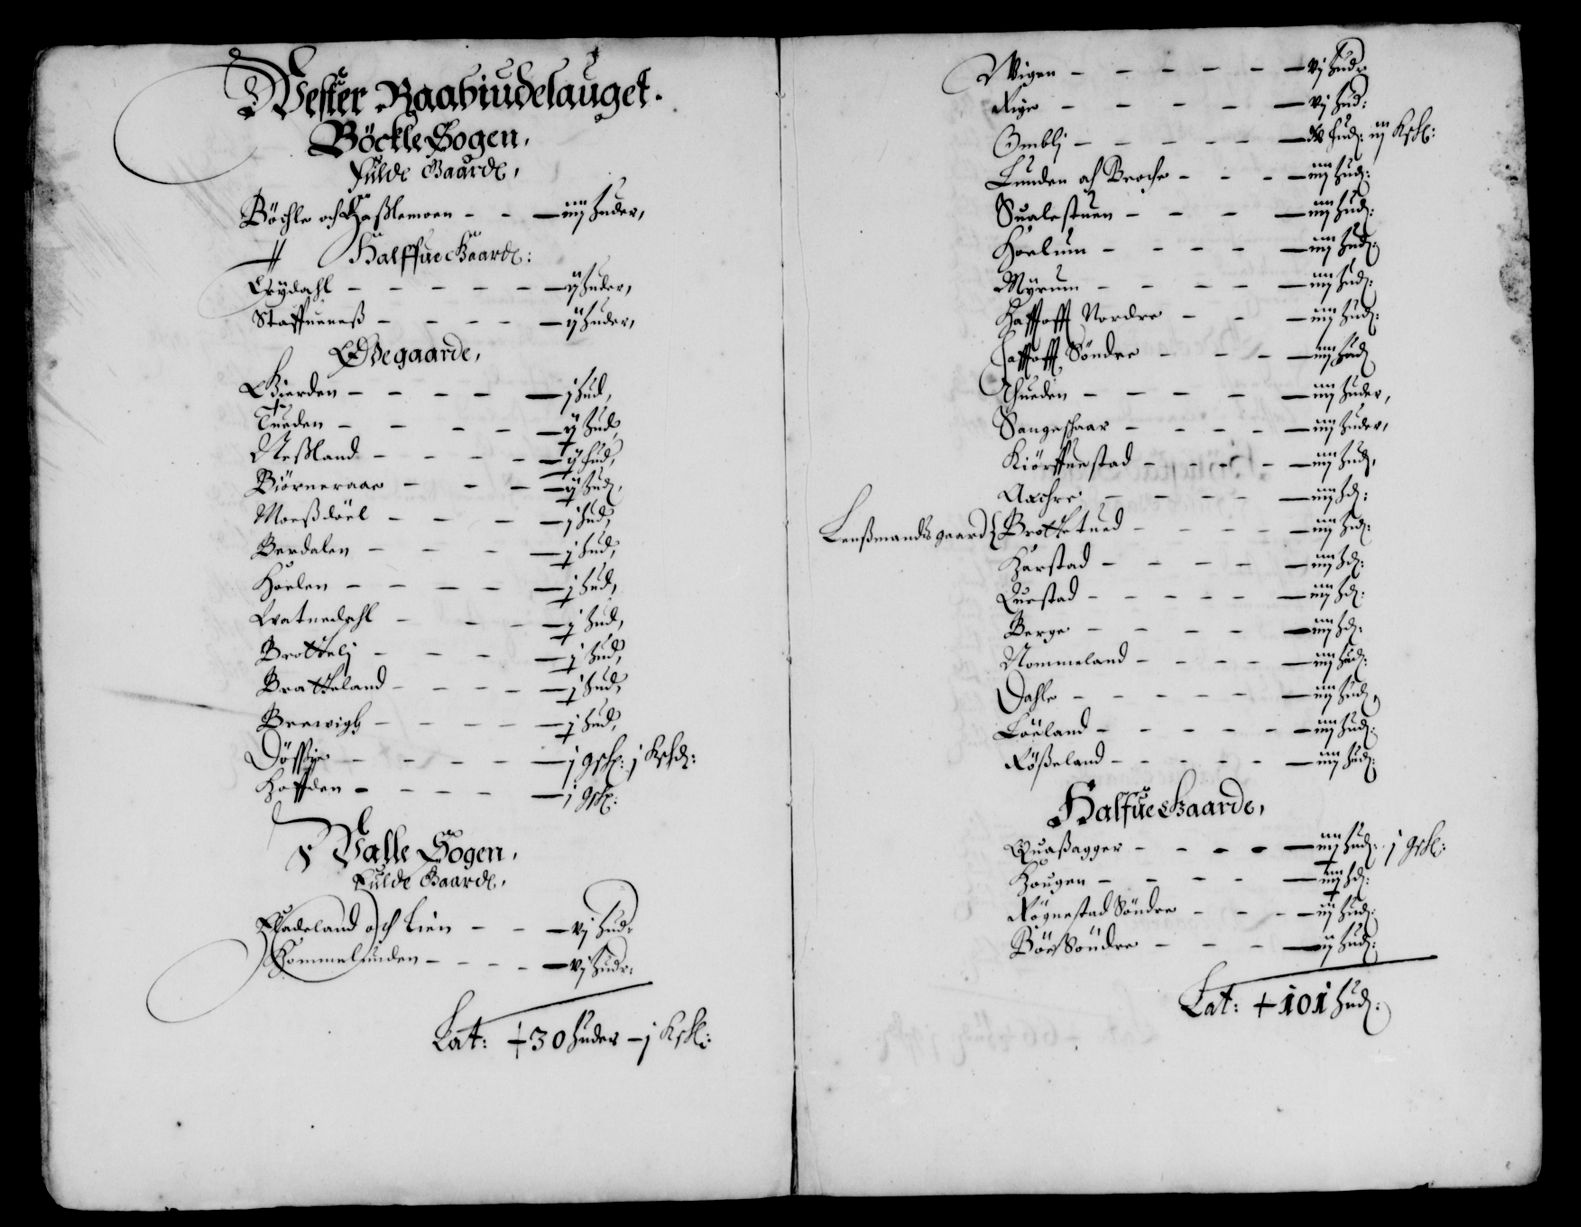 Wester Raabiudelauget.
Böckle Sogen,
Fulde Gaarde,
Böchle och Haßlemoen - - - iiij huder,
Halffue Gaarde:
Breÿdahl - - - - - ij huder,
Staffueneß - - - - - ij huder,
Ødegaarde,
Gierden - - - - - j hud,
Tueden - - - - - ij hud,
Neßland - - - - - ij hud,
Biörneraae - - - - ij hud,
Moeßdöel - - - - j hud,
Berdalen - - - - j hud,
Hoelen - - - - - j hud,
Watnedahl - - - - j hud,
Brottelj - - - - j hud,
Bratteland - - - - - j hud,
Brewigh - - - - - j hud,
- - - - - j gsk: j Ksk:
Hoffden - - - - - j gsk:
Walle Sogen,
Fulde Gaarde,
Radeland och Lien - - - vj hud:
Hommelunden - - - - - vj hudr:
Lat: + 30 huder - j Ksk:
Wigen - - - - - - vj hud:
Rige - - - - - vj hud:
Omblj - - - - - hud: iij Ksk:
Lunden och Broche - - - - iiij hud:
Sualestuen - - - - iiij hud:
Hoelum - - - - - iiij hud:
Myrum - - - - - iiij hud:
Haffoff Nordre - - - iiij hud:
Haffoff Söndre - - - - iiij hud
Thueden - - - - - iiij huder,
Sangeschaar - - - - - iiij huder,
Kiörffuestad - - - - - iiij hud,
Aachre - - - - - iiij hd:
Lenßmandts gaard { Brottetued - - - - - iiij hd:
Harstad - - - - - iiij hd:
Questad - - - - - - iiij hd:
Berge - - - - - iiij hd:
Nommeland - - - - - iiij hud:
Dahle - - - - - - iiij hud,
Löeland - - - - - - iiij hud:
Rößeland - - - - - - iiij hud:
Halfue Gaarde,
Quaßagger - - - - - iiij hud: j gsk:
Hougen - - - - - iiij hd:
Rögnestad Söndre - - - - iij hud:
Böe Söndre - - - - ij hud:
Lat: + 101 hud: